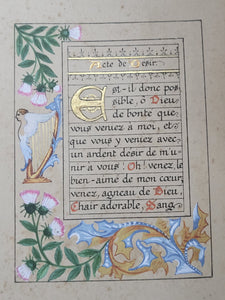 Acte de Desir.
Est-il donc pos-
sible, ô Dieu
de bonte que
vous veniez à moi, et
que vous y veniez avec
un ardent désir de m'u-
nir à vous! Oh! venez, le
bien-aimé de mon cœur,
venez, agneau de Dieu,
Chair adorable, Sang